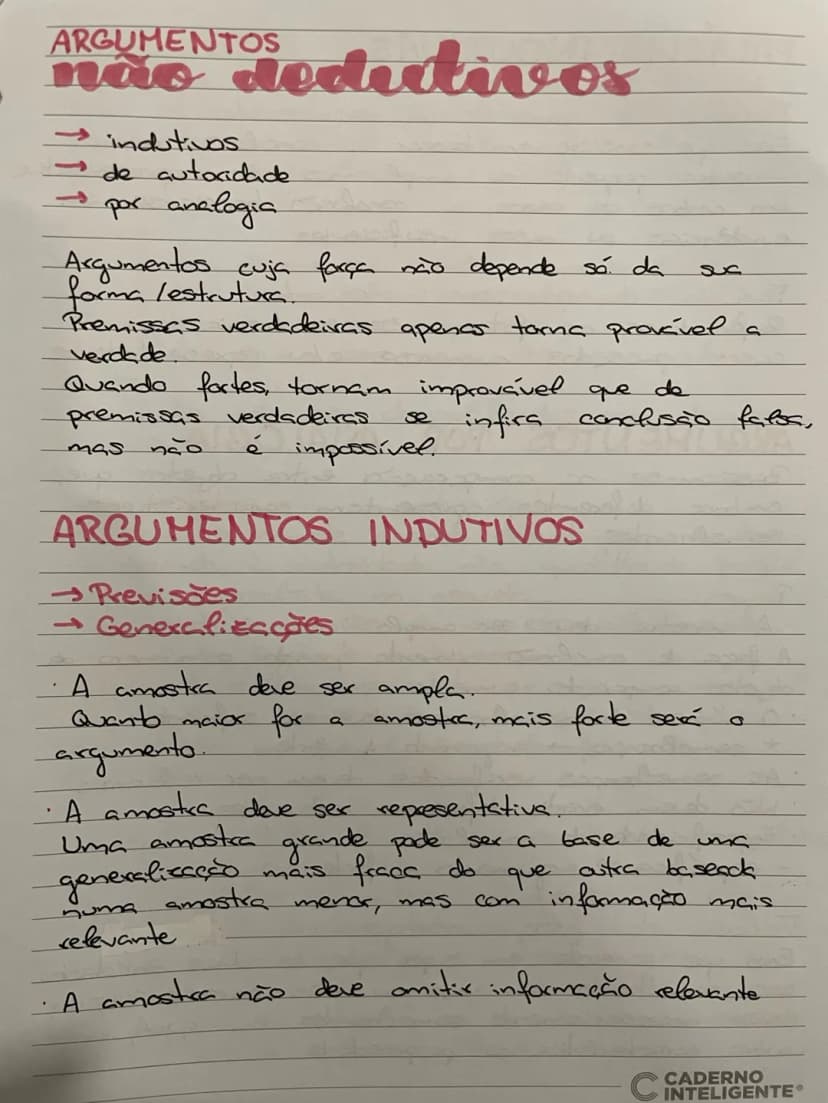 ARGUMENTOS
não dedutivos
→ indutivos
→ de autoridade
→ por analogia
Argumentos cuja força não depende só da sua
forma/estrutura.
Premissas verdadeiras apenas torna provável a
verdade.
Quando fortes, tornam improvável que de
premissas verdadeiras se infira conclusão falsa,
mas não é impossível.
ARGUMENTOS INDUTIVOS
→ Previsões
→ Generalizações
· A amostra deve ser ampla.
Quanto maior for a amostra, mais forte será o
argumento.
· A amostra deve ser representativa.
Uma amostra grande pode ser a base de uma
generalização mais fraca do que outra baseada
numa amostra menor, mas com informação mais
relevante
· A amostra não deve omitir informação relevante
CADERNO
INTELIGENTE®